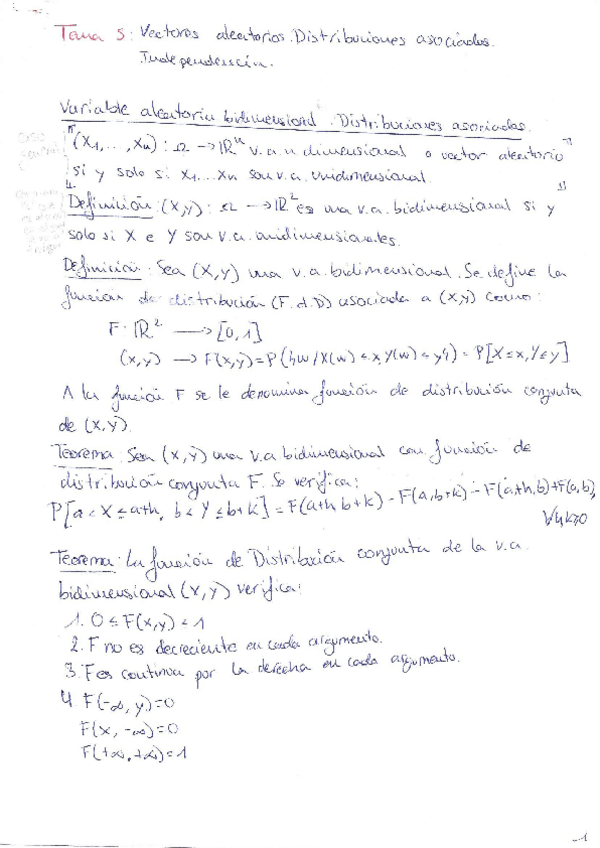 Tema 5: Vectores aleatorios. Distribuciones asociadas.
Independencia.
Variable aleatoria bidimensional. Distribuciones asociadas.
"(X₁,...,Xn): Ω → ℝⁿ v.a. n dimensional o vector aleatorio
si y solo si X₁...Xn son v.a. unidimensional."
Definición: (X,Y): Ω → ℝ² es una v.a. bidimensional si y
solo si X e Y son v.a. unidimensionales.
Definición: Sea (X,Y) una v.a. bidimensional. Se define la
función de distribución (F.d.D) asociada a (X,Y) como:
F: ℝ² → [0,1]
(x,y) → F(x,y) = P({w/X(w) ≤ x, Y(w) ≤ y}) = P[X ≤ x, Y ≤ y]
A la función F se le denomina función de distribución conjunta
de (X,Y).
Teorema: Sea (X,Y) una v.a bidimensional con función de
distribución conjunta F. Se verifica:
P[a < X ≤ a+h, b < Y ≤ b+k] = F(a+h, b+k) - F(a, b+k) - F(a+h, b) + F(a, b),
Teorema: La función de Distribución conjunta de la v.a.
bidimensional (X,Y) verifica:
1. 0 ≤ F(x,y) ≤ 1
2. F no es decreciente en cada argumento.
3. F es continua por la derecha en cada argumento.
4. F(-∞, y) = 0
F(x, -∞) = 0
F(+∞, +∞) = 1
-1